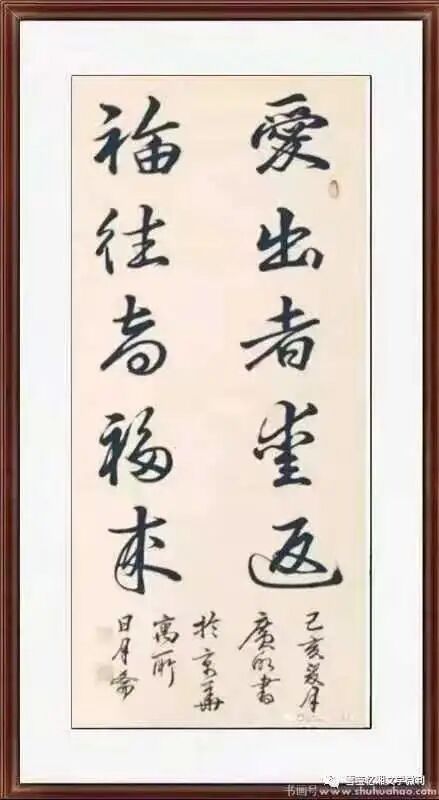 愛出者爱返
福往者福来
己亥夏月
廣書
於京華
寓所
日月斋
书画号www.shuhuahao.com